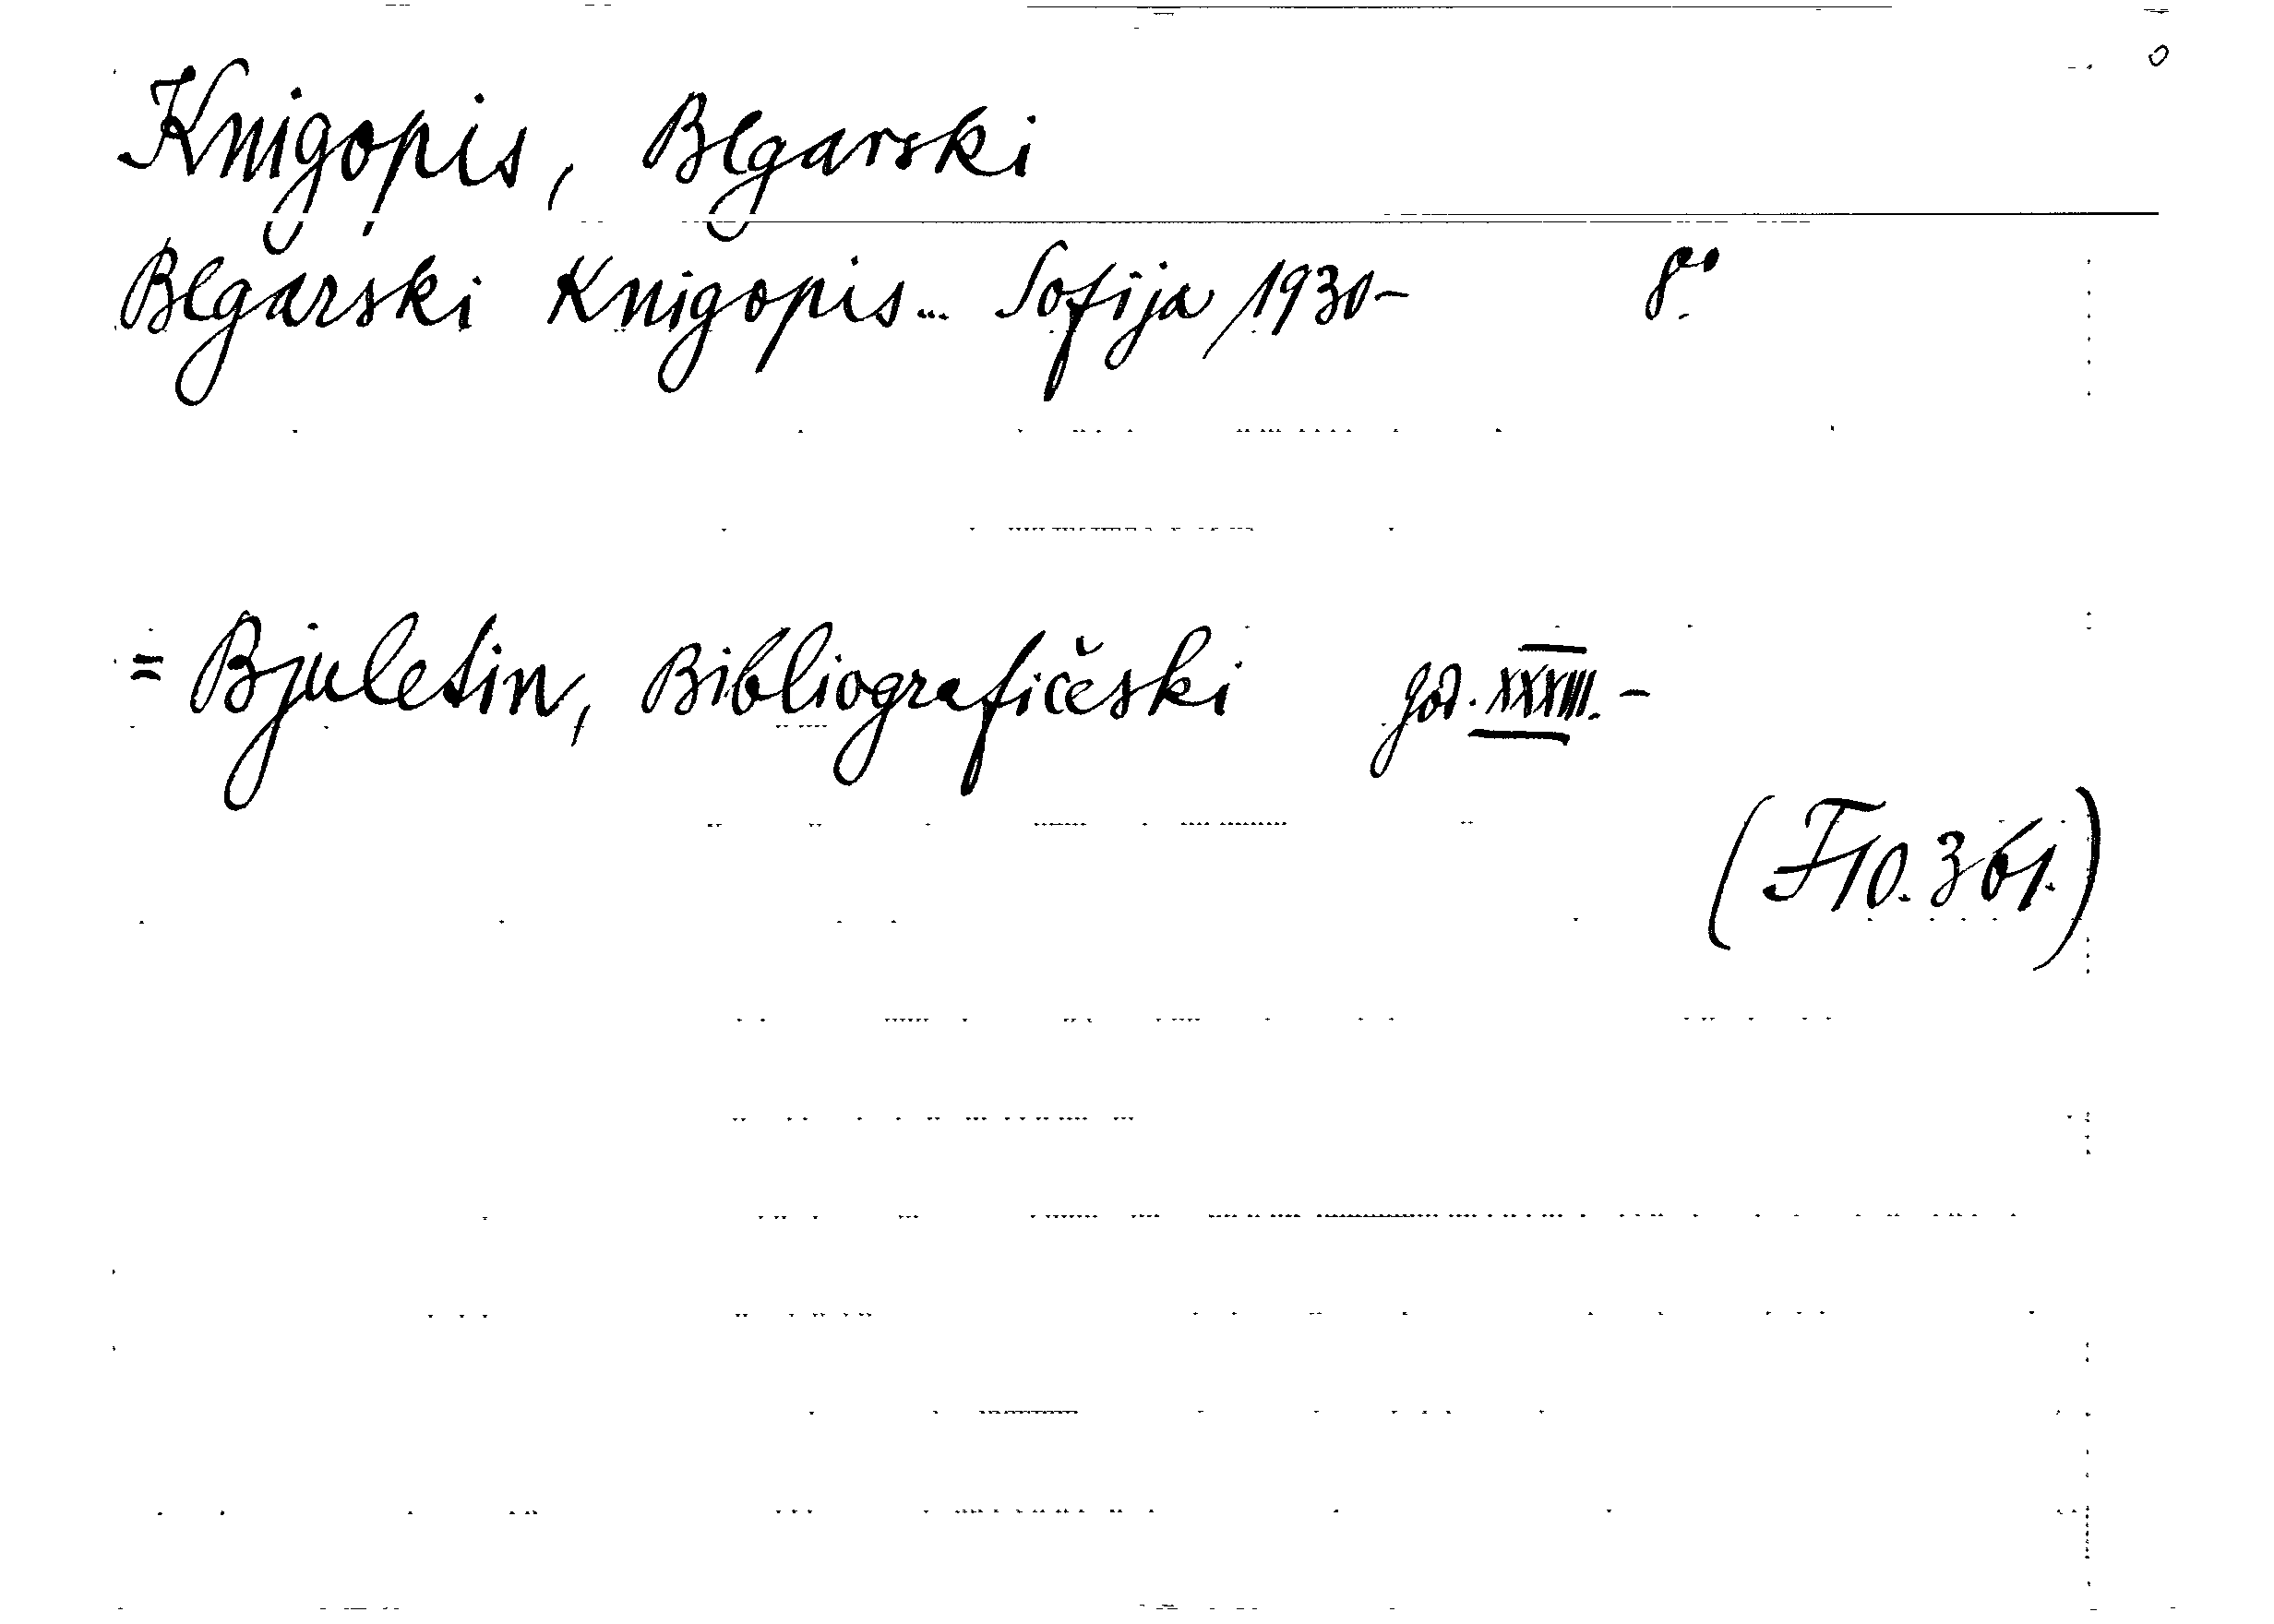 Knigopis, Blgarski
Blgarski Knigopis... Sofija, 1930- 8°.
= Bjuletin, Bibliografičeski god. XXXIII. -
(F10.361.)